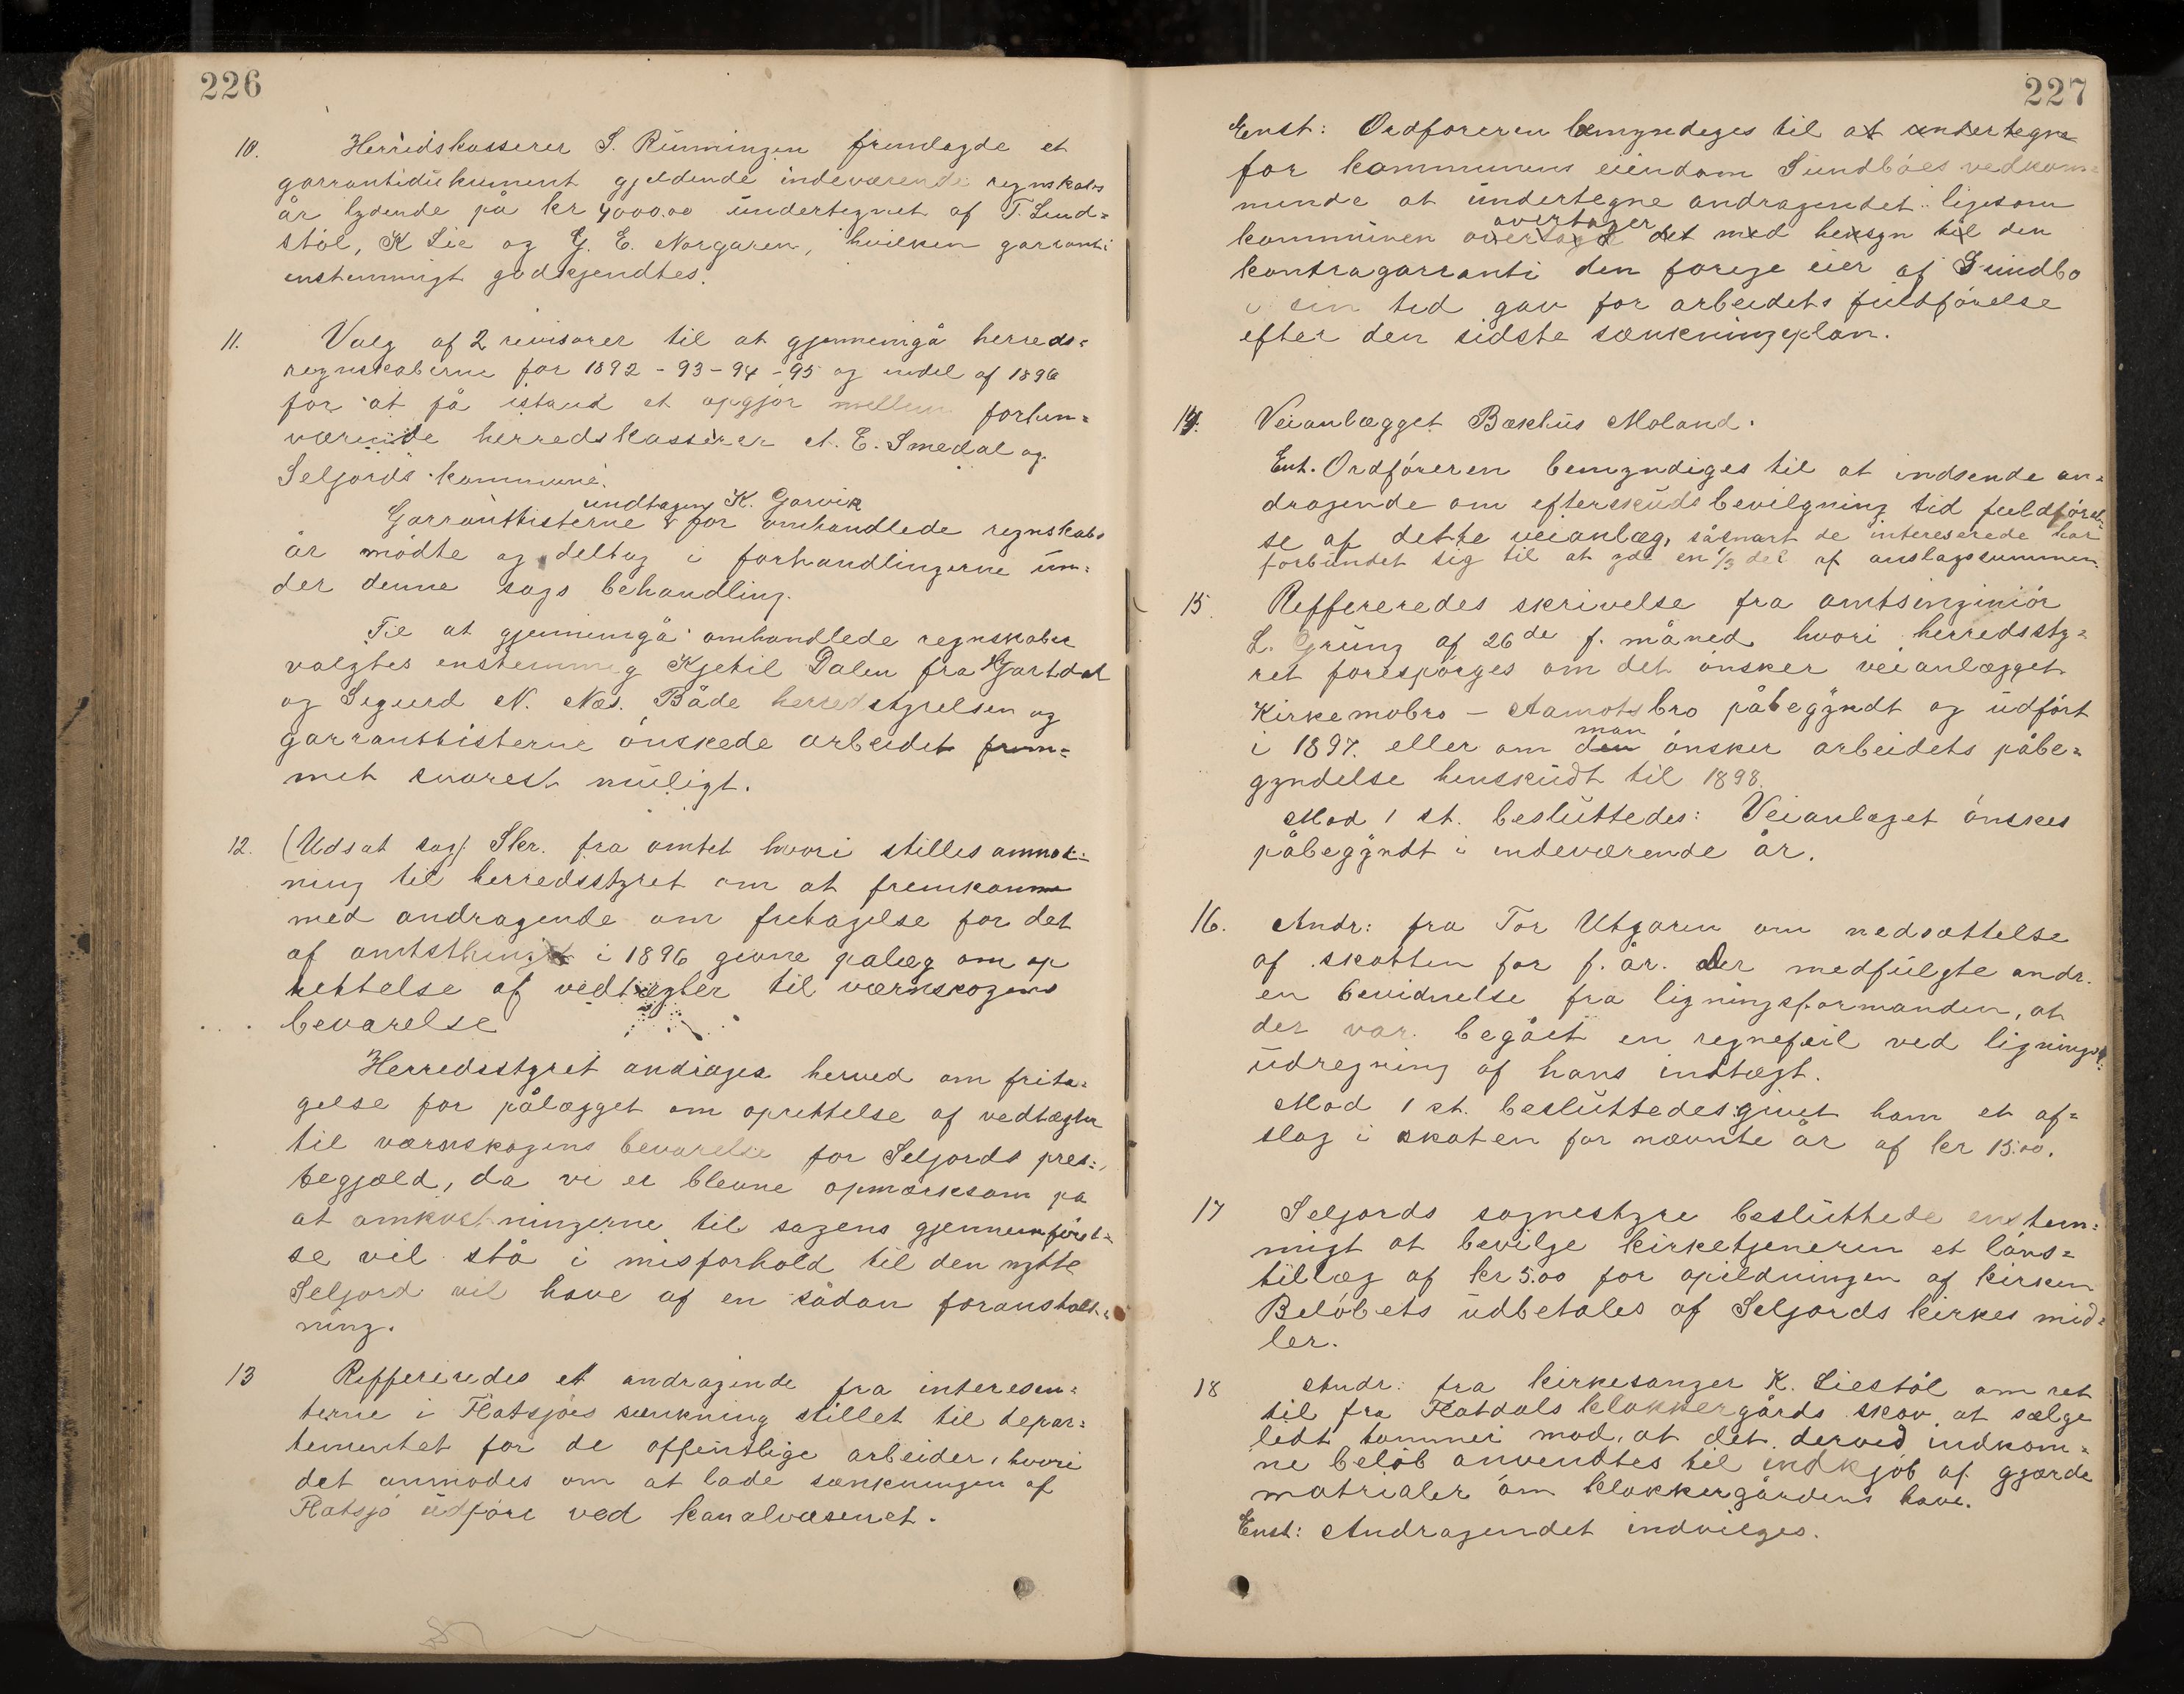 226
10. Herredskasserer S. Rünningen fremlagde et
garrantidükument gjeldende indeværende regnskabs
år lydende på kr 4000.00 ündertegnet af T. Lind=
støl, K Lie og G. E. Norgaren, hvilken garranti
enstemmigt godkjendtes.
11. Valg af 2 revisorer til at gjennemgå herreds=
regnskaberne for 1892 - 93 - 94 - 95 og endel af 1896
for at få istand et opgjør mellem forhen=
værende herredskasserer A. E. Smedal og
Seljords kommune.
undtagen K. Garvik
Garrantisterne for omhandlede regnskabs
år mødte og deltog i forhandlingerne ün=
der denne sags behandling.
Til at gjennemgå omhandlede regnskaber
valgtes enstemmig Kjetil Dalen fra Hjartdal
og Sigurd N. Næs. Både herredstyrelsen og
garranttisterne ønskede arbeidet frem=
met snarest müligt.
12. (Udsat sag). Skr. fra amtet hvori stilles anmod=
ning til herredsstyret om at fremkomme
med andragende om fritagelse for det
af amtsthinget i 1896 givne pålæg om op
rettelse af vedtægter til værnskogens
bevarelse
Herredsstyret andrages herved om frita=
gelse for pålægget om oprettelse af vedtægter
til værnskogens bevarelse for Seljords pres=
tegjæld, da vi er blevne opmærksom på
at omkostningerne til sagens gjennemførel=
se vil stå i misforhold til den nytte
Seljord vil have af en sådan foranstalt=
ning.
13 Reffereredes et andragende fra interesen=
terne i Flatsjøes sænkning stillet til depar=
tementet for de offentlige arbeider, hvori
det anmodes om at lade sænkningen af
Flatsjø udføre ved kanalvæsenet.
227
Enst: Ordføreren bemyndeges til at undertegne
for kommunens eiendom Sundbøes vedkom=
mende at ündertegne andragendet ligesom
overtager
kommünen overtage det med hensyn til den
kontragarranti den forige eier af Sundbø
i sin tid gav for arbeidets füldførelse
efter den sidste sænkningsplan.
14. Veianlægget Bækhüs Moland.
Ent. Ordføreren bemyndiges til at indsende an=
dragende om efterskudsbevilgning tid fuldførel=
se af dette veianlæg, såsnart de intereserede har
forbundet sig til at yde en 1/3 del af anslagssummen.
15. Reffereredes skrivelse fra amtsinginiør
L. Grüng af 26de f. måned hvori herredssty=
ret forespørges om det ønsker veianlægget
Kirkemobro - Aamotsbro påbegyndt og üdført
man
i 1897. eller om den ønsker arbeidets påbe=
gyndelse henskudt til 1898.
Mod 1 st. beslüttedes: Veianlæget ønskes
påbegyndt i indeværende år.
16. Andr: fra Tor Utgaren om nedsættelse
af skatten for f. år. Der medfulgte andr.
en bevidnelse fra ligningsformanden, at
der var begået en regnefeil ved lignings
üdregning af hans indtægt.
Mod 1 st. beslüttedes givet ham et af=
slag i skaten for nævnte år af kr 15.00.
17 Seljords sognestyre beslüttede enstem=
migt at bevilge kirketjeneren et løns=
tillæg af kr 5.00 for opildningen af kirken
Beløbets üdbetales af Seljords kirkes mid=
ler.
18 Andr: fra kirkesanger K. Liestøl om ret
til fra Flatdals klokkergårds skov at sælge
lidt tømmer mod, at det derved indkom=
ne beløb anvendtes til indkjøb af gjærde
matrialer om klokkergårdens have.
Enst: Andragendet indvilges.